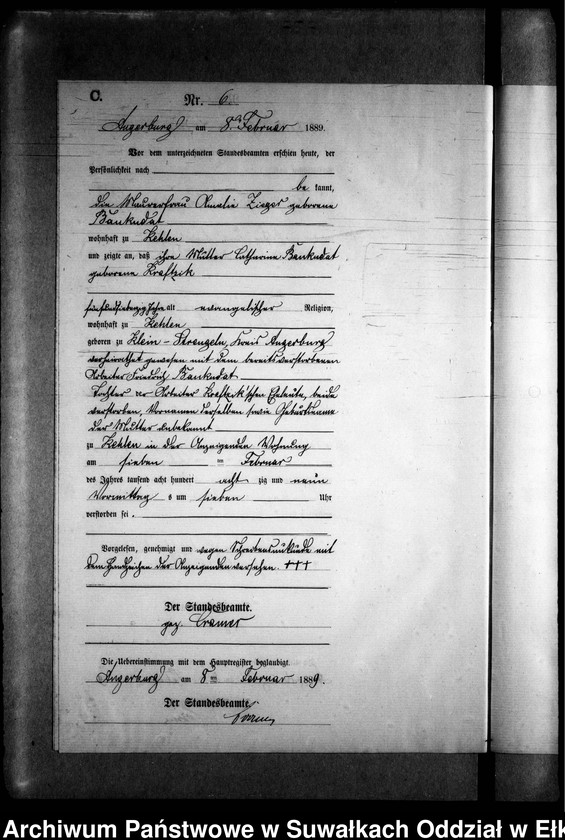 C.
Nr. 6.
Angerburg am 8ten Februar 1889.
Vor dem unterzeichneten Standesbeamten erschien heute, der
Persönlichkeit nach
be kannt,
die Maurerfrau Amalie Zieger geborene
Bankudat
wohnhaft zu Kehlen
und zeigte an, daß ihre Mutter Catharine Bankudat
geborene Krafzick
fünfundsiebenzig Jahre alt evangelischer Religion,
wohnhaft zu Kehlen
geboren zu Klein-Strengeln, Kreis Angerburg
verheirathet gewesen mit dem bereits verstorbenen
Arbeiter Friedrich Bankudat
Tochter der Arbeiter Krafzick'schen Eheleute, beide
verstorben, Vornamen derselben sowie Geburtsname
der Mutter unbekannt
zu Kehlen in der Anzeigenden Wohnung
am sieben ten Februar
des Jahres tausend acht hundert acht zig und neun
Vormittag s um sieben Uhr
verstorben sei.
Vorgelesen, genehmigt und wegen Schreibensunkunde mit
dem Handzeichen der Anzeigenden versehen. +++
Der Standesbeamte.
gez. Cramer
Die Uebereinstimmung mit dem Hauptregister beglaubigt.
Angerburg am 8ten Februar 1889.
Der Standesbeamte.
Archiwum Państwowe w Suwałkach Oddział w Ełk